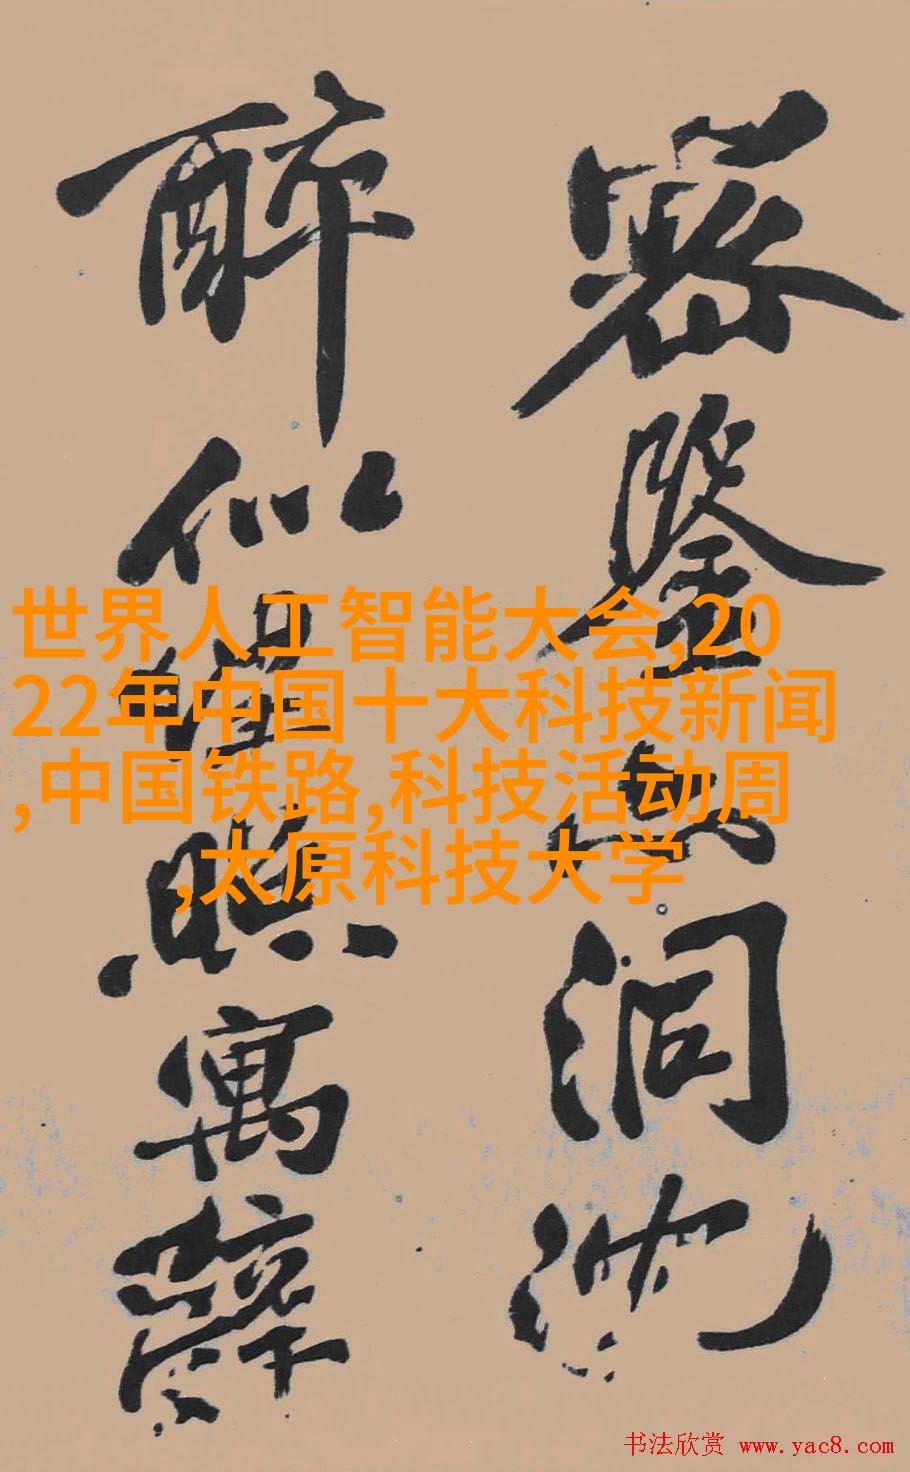 世界人工智能大会,20
22年中国十大科技新闻
,中国铁路,科技活动周
,太原科技大学
密鉴洞沈
醉似照寓辞
书法欣赏 www.yac8.com